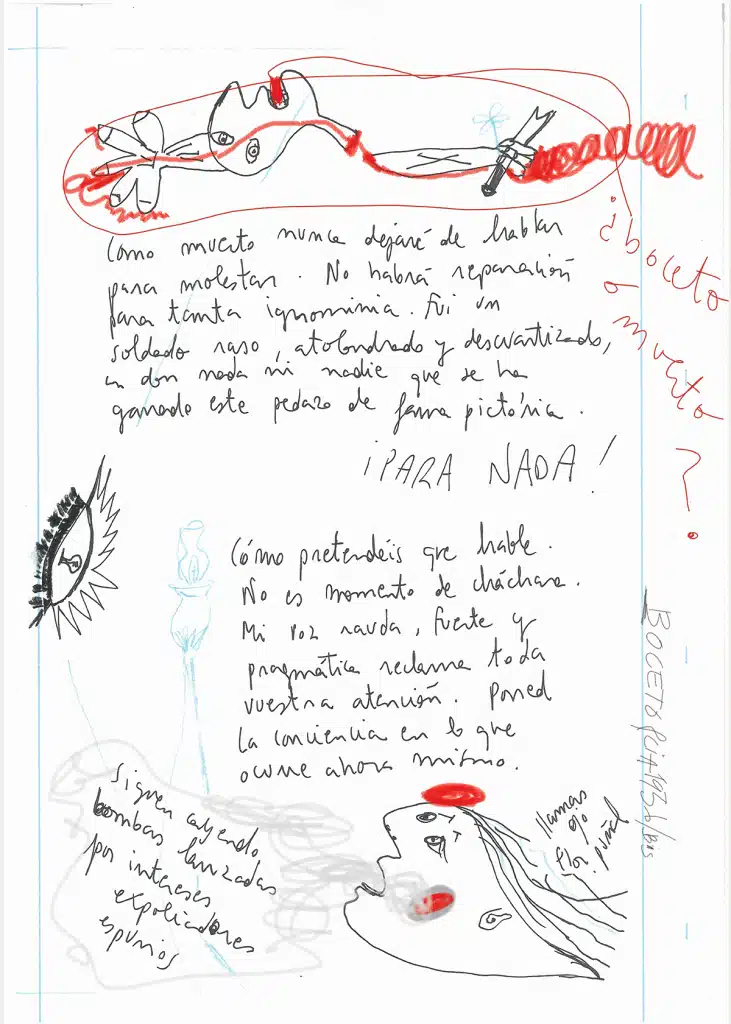 Como muerto nunca dejaré de hablar
para molestar. No habrá reparación
para tanta ignominia. Fui un
soldado raso, atolondrado y descuartizado,
un don nada ni nadie que se ha
ganado este pedazo de fama pictórica.
¡PARA NADA!
¿boceto
o muerto?
Cómo pretendéis que hable.
No es momento de cháchara.
Mi voz rauda, fuerte y
pragmática reclama toda
vuestra atención. Poned
la conciencia en lo que
ocurre ahora mismo.
BOCETO
Siguen cayendo
bombas lanzadas
por intereses
expoliadores
espurios
llamas
ojo
flor. puñal